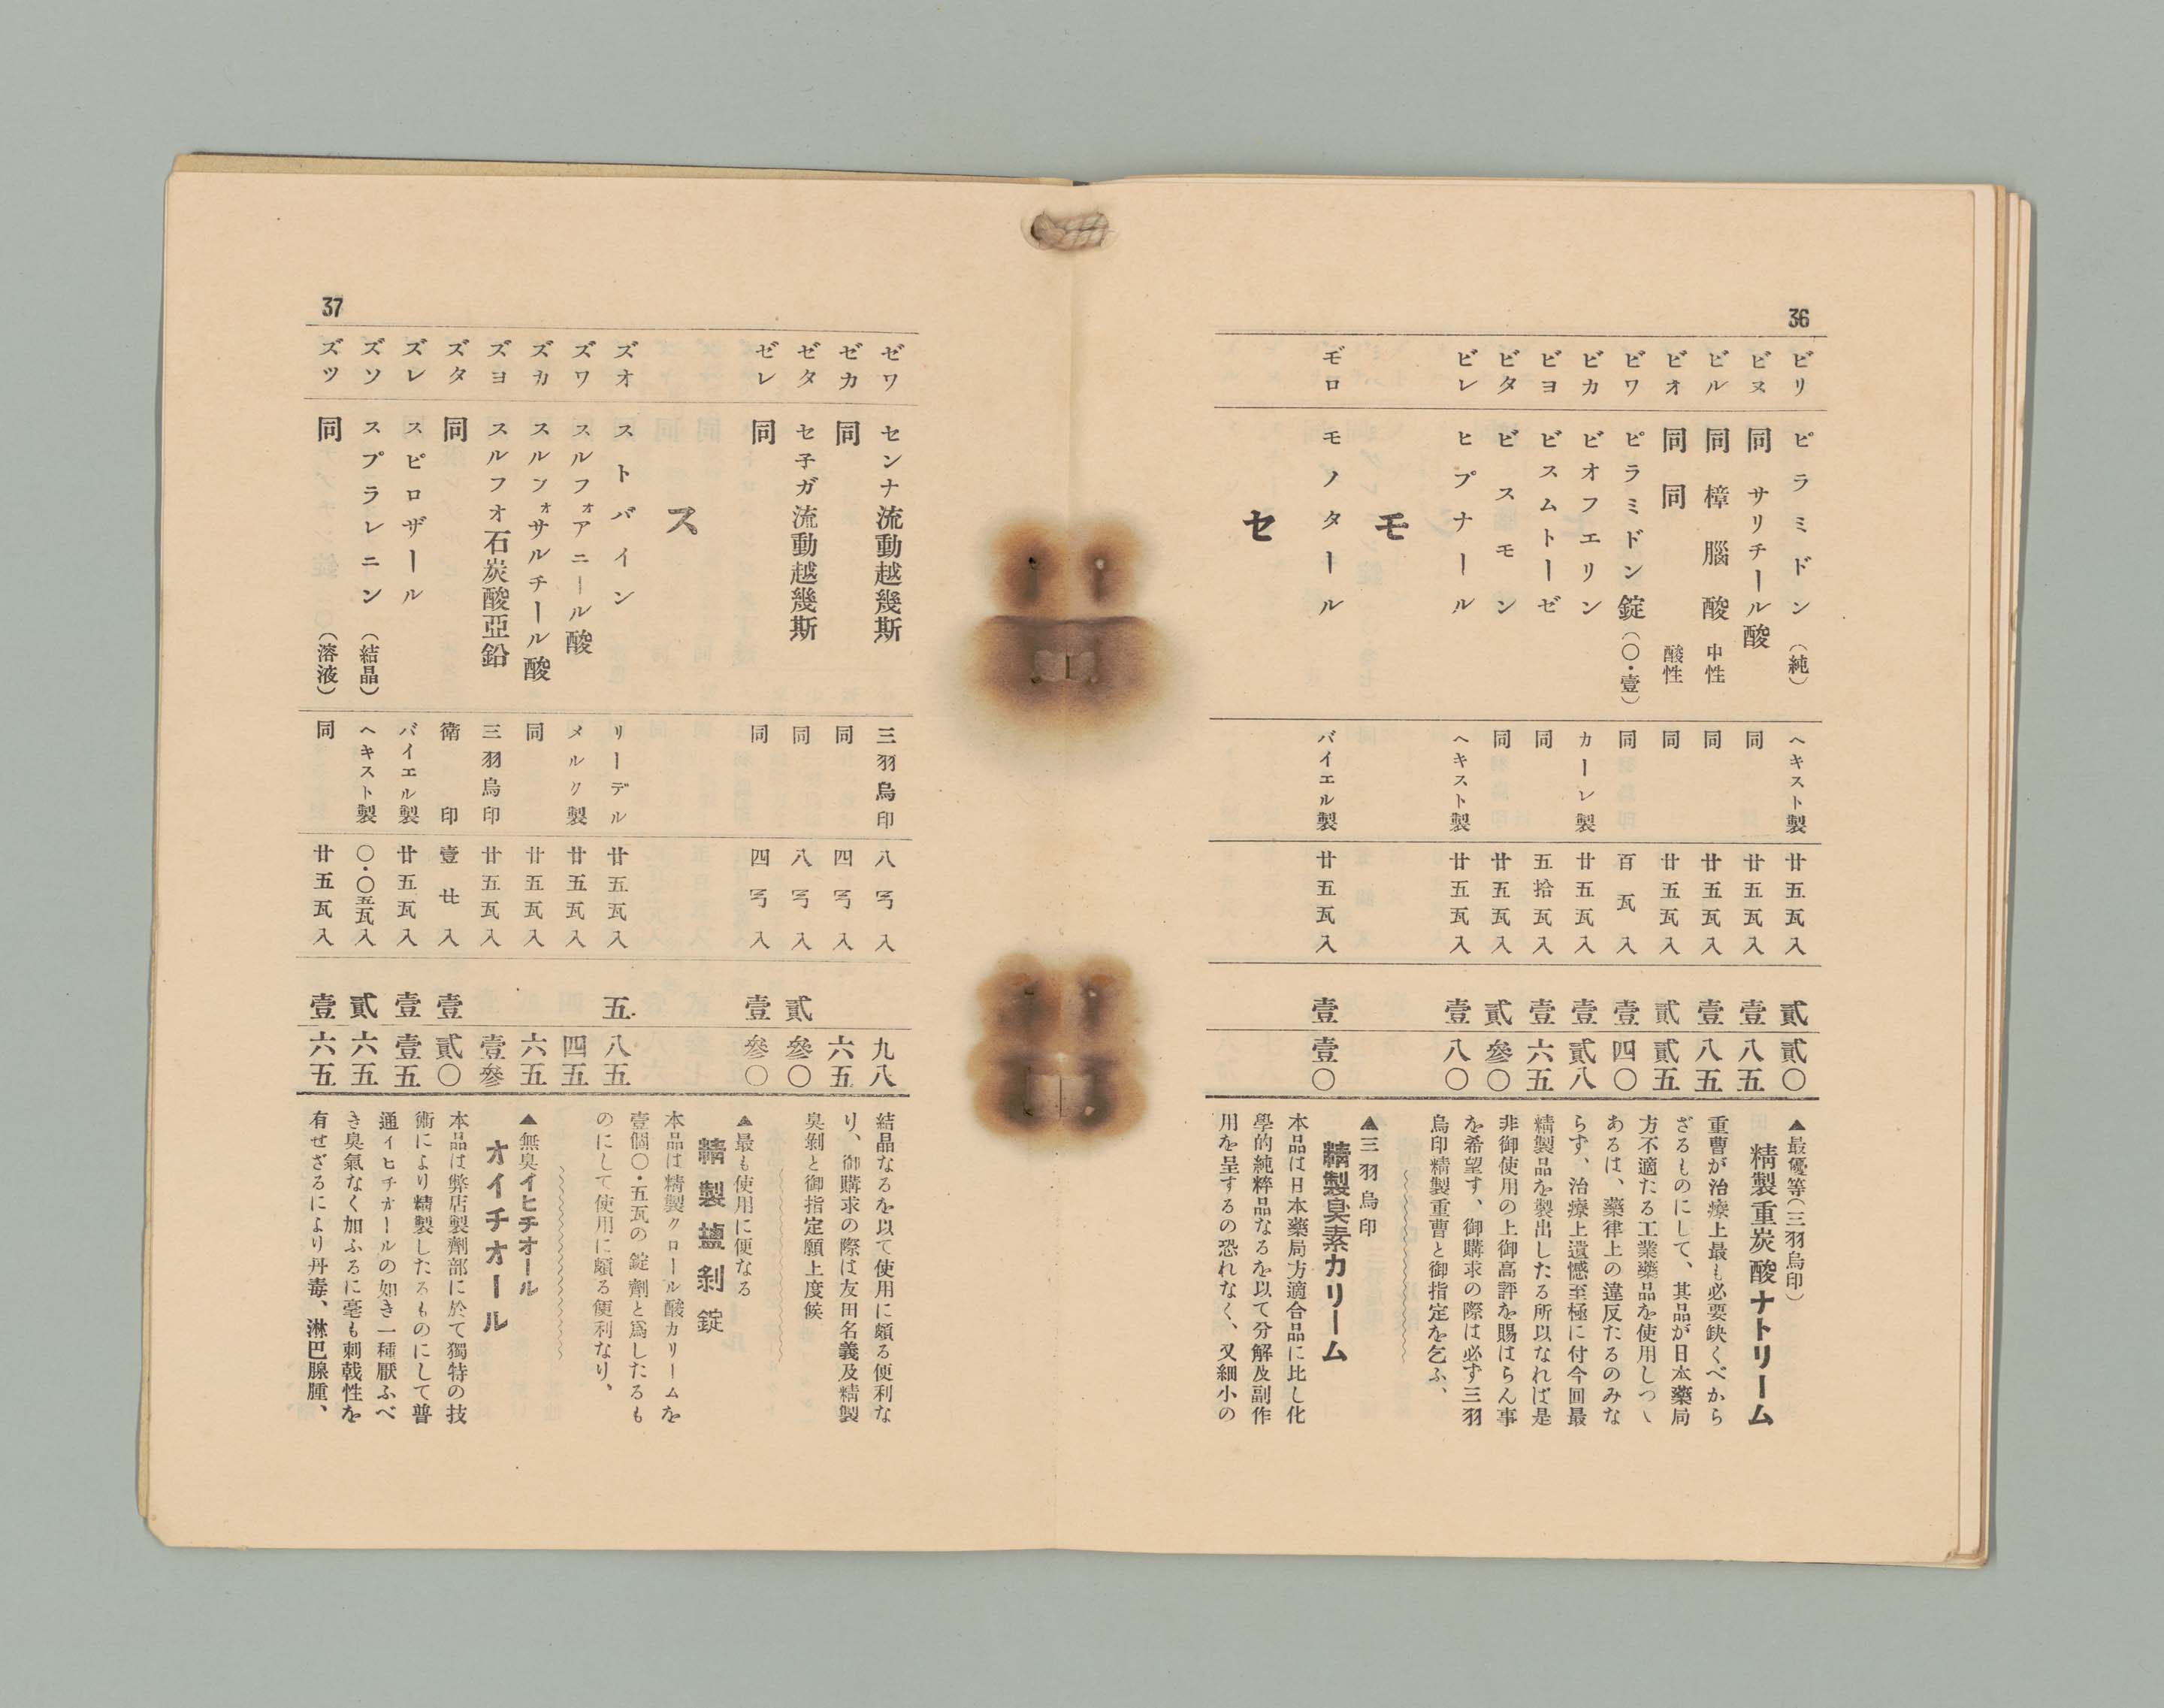 36
ビリ ピラミドン（純） ヘキスト製 廿五瓦入 貳 貳〇
ビヌ 同 サリチール酸 同 廿五瓦入 壹 八五
ビル 同 樟腦酸 中性 同 廿五瓦入 壹 八五
ビオ 同 同 酸性 同 廿五瓦入 貳 貳五
ビワ ピラミドン錠（〇・壹） 同 百瓦入 壹 四〇
ビカ ビオフエリン カーレ製 廿五瓦入 壹 貳八
ビヨ ビスムトーゼ 同 五拾瓦入 壹 六五
ビタ ビスモン 同 廿五瓦入 貳 參〇
ビレ ヒプナール ヘキスト製 廿五瓦入 壹 八〇
モ
モロ モノタール バイエル製 廿五瓦入 壹 壹〇
セ
▲最優等（三羽烏印）
精製重炭酸ナトリーム
重曹が治療上最も必要缺くべから
ざるものにして、其品が日本藥局
方不適たる工業藥品を使用しつゝ
あるは、藥律上の違反たるのみな
らず、治療上遺憾至極に付今回最
精製品を製出したる所以なれば是
非御使用の上御高評を賜はらん事
を希望す、御購求の際は必ず三羽
烏印精製重曹と御指定を乞ふ、
▲三羽烏印
精製臭素カリーム
本品は日本藥局方適合品に比し化
學的純粹品なるを以て分解及副作
用を呈するの恐れなく、又細小の
37
ゼワ センナ流動越幾斯 三羽烏印 八丐入 九八
ゼカ 同 同 四丐入 六五
ゼタ セ子ガ流動越幾斯 同 八丐入 貳 參〇
ゼレ 同 同 四丐入 壹 參〇
ス
ズオ ストバイン リーデル 廿五瓦入 五 八五
ズワ スルフォアニール酸 メルク製 廿五瓦入 四五
ズカ スルンォサルチール酸 同 廿五瓦入 六五
ズヨ スルフオ石炭酸亞鉛 三羽烏印 廿五瓦入 壹參
ズタ 同 衛印 壹廿入 壹 貳〇
ズレ スピロザール バイエル製 廿五瓦入 壹 壹五
ズソ スプラレニン（結晶） ヘキスト製 〇・〇五瓦入 貳 六五
ズツ 同（溶液） 同 廿五瓦入 壹 六五
結晶なるを以て使用に頗る便利な
り、御購求の際は友田名義及精製
臭剝と御指定願上度候
▲最も使用に便なる
精製鹽剝錠
本品は精製クロール酸カリームを
壹個〇・五瓦の錠劑と爲したるも
のにして使用に頗る便利なり、
▲無臭イヒチオール
オイチオール
本品は弊店製劑部に於て獨特の技
術により精製したるものにして普
通イヒチオールの如き一種厭ふべ
き臭氣なく加ふるに毫も刺戟性を
有せざるにより丹毒、淋巴腺腫、